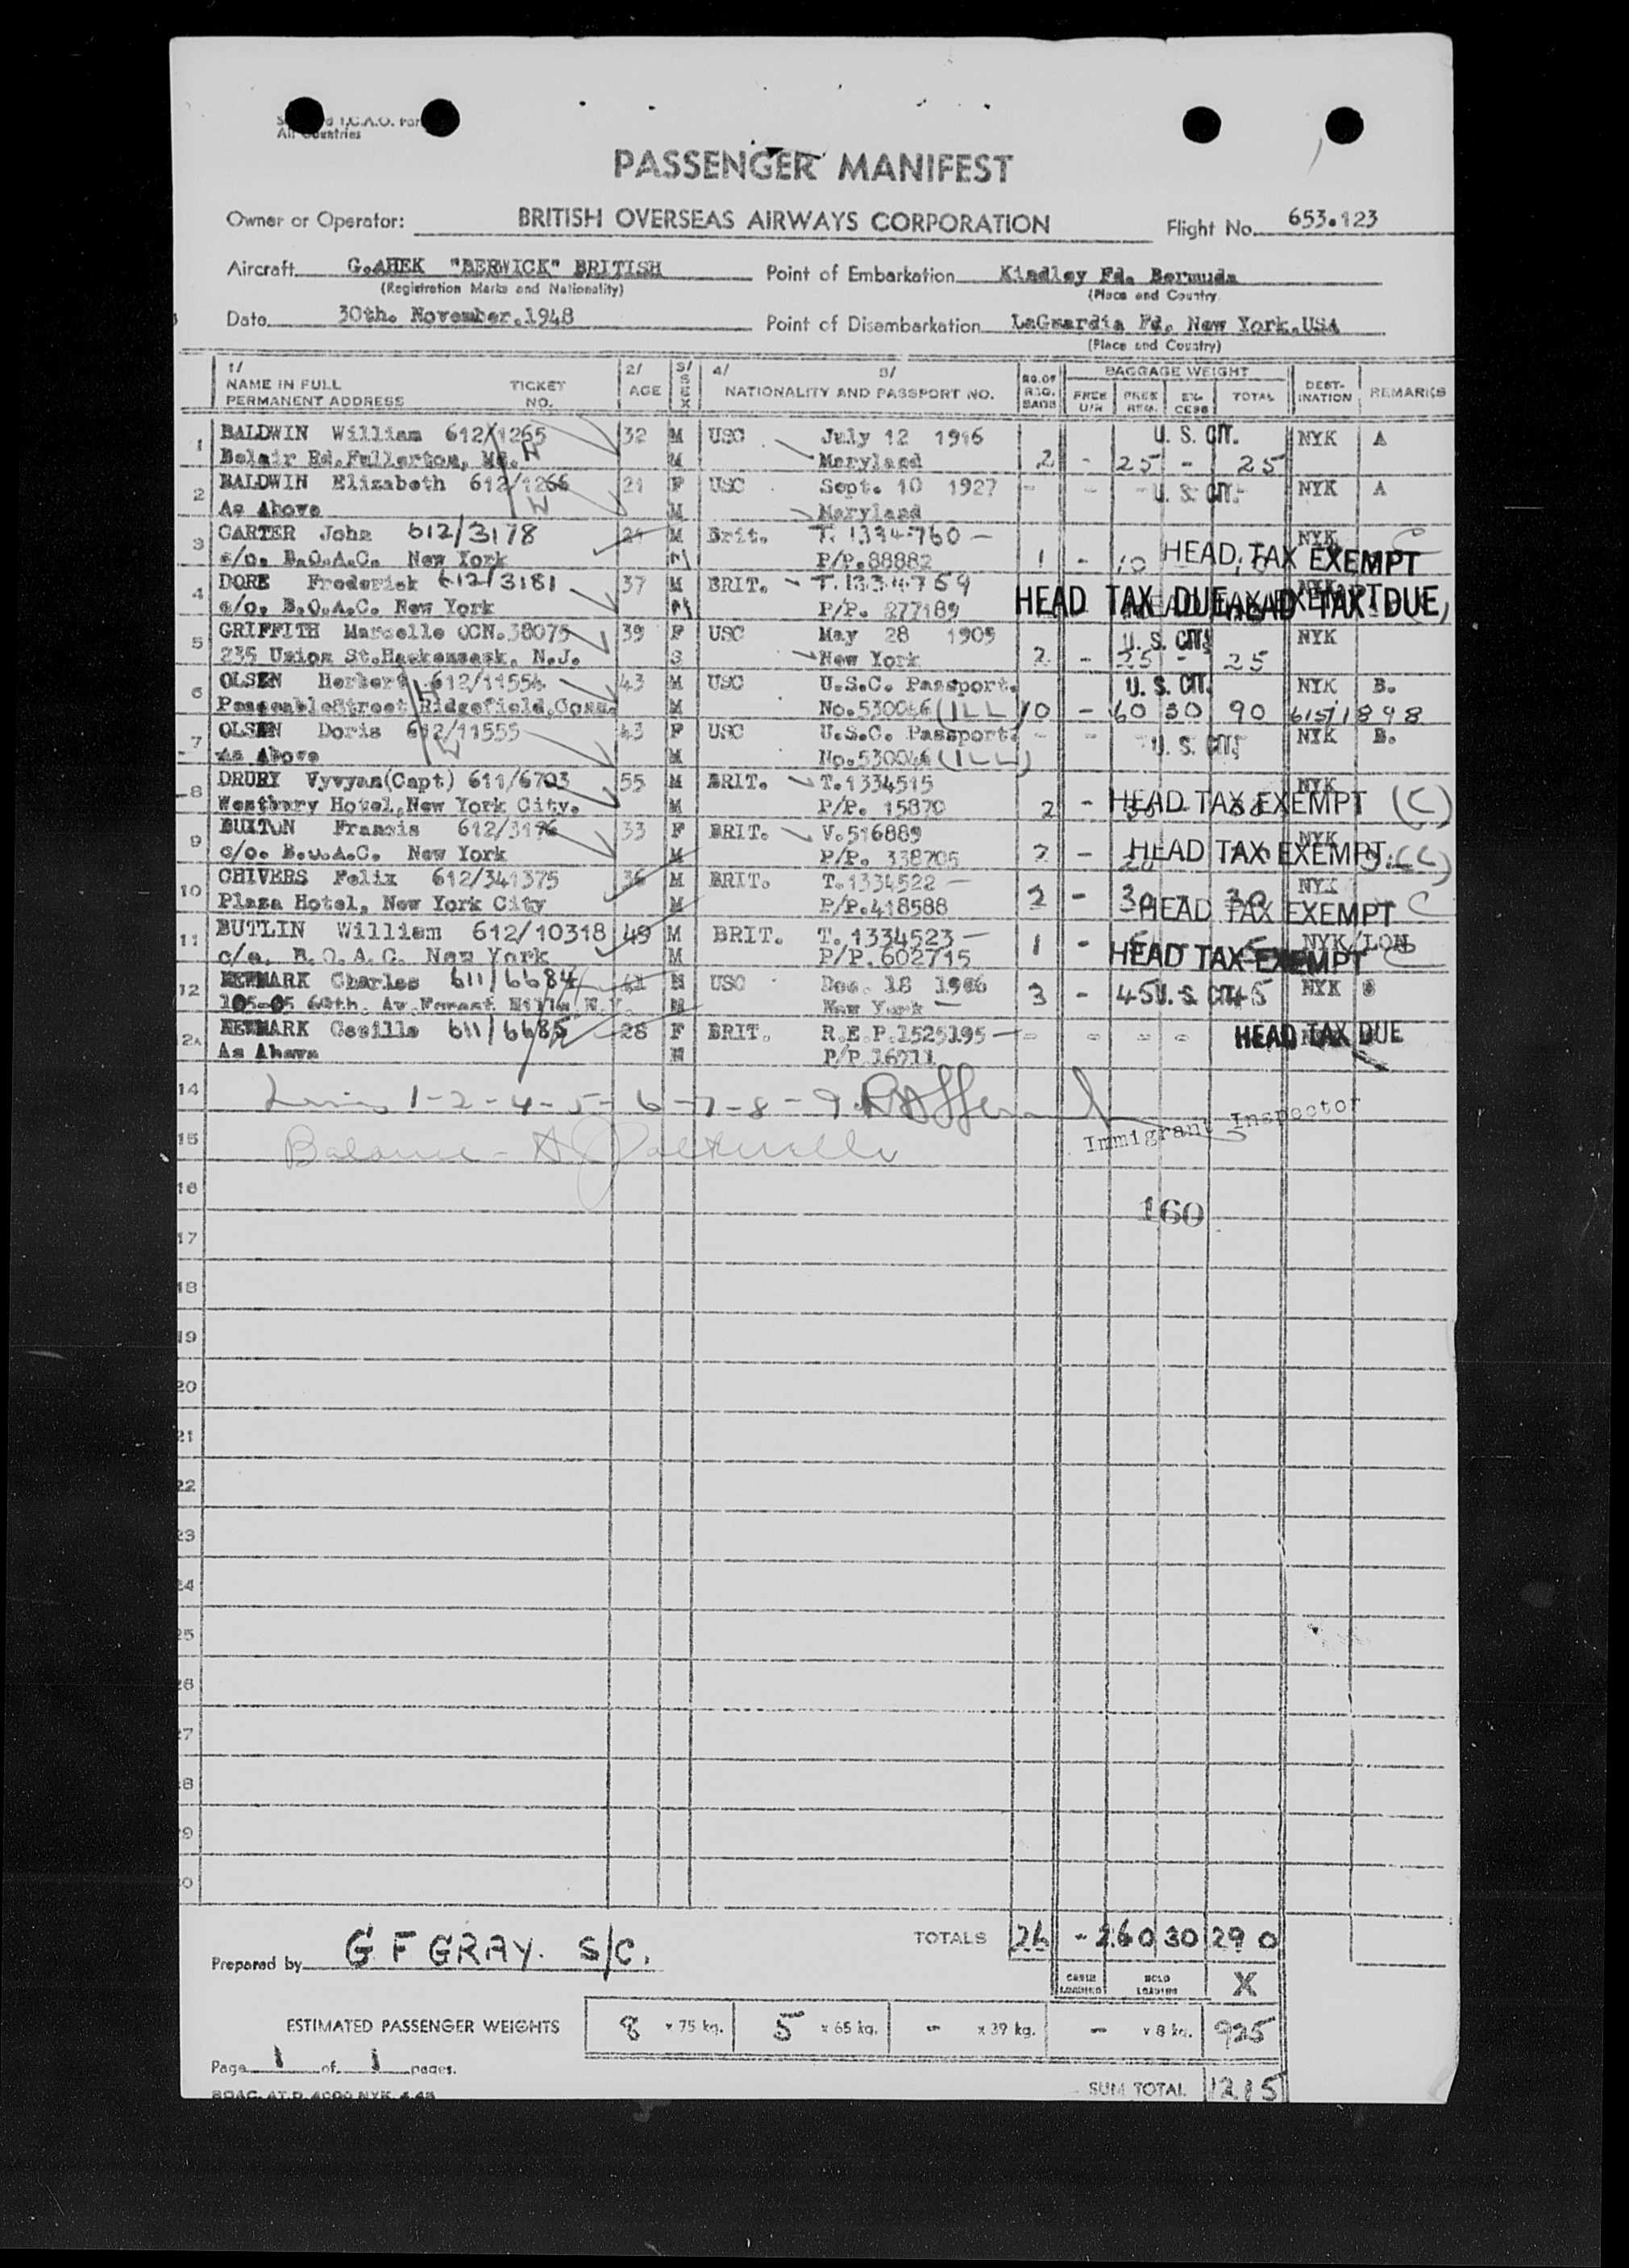 All Countries
PASSENGER MANIFEST
Owner or Operator: BRITISH OVERSEAS AIRWAYS CORPORATION Flight No. 653.123
Aircraft G.AHEK "BERWICK" BRITISH Point of Embarkation Kindley Fd. Bermuda
(Registration Marks and Nationality) (Place and Country
Date 30th. November.1948 Point of Disembarkation LaGuardia Fd. New York.USA
(Place and Country)
1/ 2/ 3/ 4/ 5/ BAGGAGE WEIGHT
NAME IN FULL TICKET AGE SEX NATIONALITY AND PASSPORT NO. NO.OF REG. BAGS FREE U/R FREE REG. EX- CESS TOTAL DEST- INATION REMARKS
PERMANENT ADDRESS NO.
1 BALDWIN William 612/1265 32 M USC July 12 1916 U. S. CIT. NYK A
Belair Rd.Fullerton, Md. M Maryland 2 - 25 - 25
2 BALDWIN Elizabeth 612/1266 21 F USC Sept. 10 1927 - - - U. S. CIT. - NYK A
As Above M Maryland
3 CARTER John 612/3178 21 M Brit. T. 1334760 - NYK C
c/o. B.O.A.C. New York M P/P.88882 1 - 10 HEAD TAX EXEMPT
4 DORE Frederick 612/3181 37 M BRIT. T.1334769 NYK
c/o. B.O.A.C. New York M P/P. 277189 HEAD TAX DUE HEAD TAX EXEMPT HEAD TAX DUE
5 GRIFFITH Marcelle OCN.38075 39 F USC May 28 1909 U. S. CIT. NYK
235 Union St.Hackensack, N.J. S New York 2 - 25 - 25
6 OLSEN Herbert 612/11554 43 M USC U.S.C. Passport. U. S. CIT. NYK B.
Ridgefield,Conn. M No.530046 (ILL) 10 - 60 30 90 615/1898
7 OLSEN Doris 612/11555 43 F USC U.S.C. Passport. - - U. S. CIT. NYK B.
As Above M No.530046 (ILL)
8 DRURY Vyvyan(Capt) 611/6703 55 M BRIT. T.1334515 NYK
Westbury Hotel,New York City. M P/P. 15870 2 - HEAD TAX EXEMPT (C)
9 BUXTON Francis 612/3196 33 F BRIT. V.516889 NYK
c/o. B.O.A.C. New York M P/P. 338705 2 - HEAD TAX EXEMPT (C)
10 CHIVERS Felix 612/341375 36 M BRIT. T.1334522 - NYK
Plaza Hotel, New York City M P/P.418588 2 - 30 - 30 HEAD TAX EXEMPT C
11 BUTLIN William 612/10318 49 M BRIT. T. 1334523 - NYK/LON
c/o. B.O.A.C. New York M P/P.602715 1 - HEAD TAX EXEMPT C
12 NEWMARK Charles 611/6684 41 M USC Dec. 18 1906 NYK
105-05 69th. Av.Forest Hills N.Y. M New York - 3 - 45 U. S. CIT. 45
2A NEWMARK Cecille 611/6685 28 F BRIT. R.E.P.1525195 - - - - - HEAD TAX DUE
As Above M P/P 16911
14 Lines 1-2-4-5-6-7-8-9
Immigrant Inspector
15 Balance -
16
160
17
18
19
20
21
22
23
24
25
26
27
28
29
30
TOTALS 26 - 260 30 290
Prepared by G F GRAY. S/C.
CABIN LOADING HOLD LOADING X
ESTIMATED PASSENGER WEIGHTS 8 x 75 kg. 5 x 65 kg. - x 39 kg. - x 8 kg. 925
Page 1 of 1 pages.
SUM TOTAL 1215